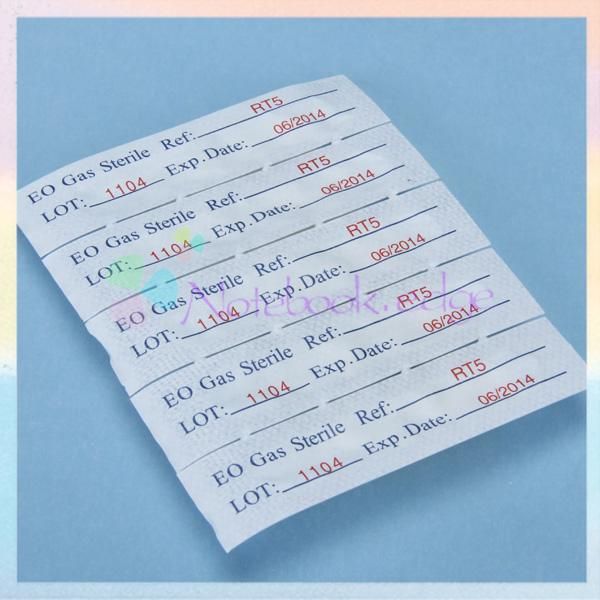 EO Gas Sterile Ref: RT5
LOT: 1104 Exp.Date: 06/2014
EO Gas Sterile Ref: RT5
LOT: 1104 Exp.Date: 06/2014
EO Gas Sterile Ref: RT5
LOT: 1104 Exp.Date: 06/2014
EO Gas Sterile Ref: RT5
LOT: 1104 Exp.Date: 06/2014
EO Gas Sterile Ref: RT5
LOT: 1104 Exp.Date: 06/2014
Notebook.edge